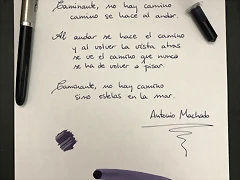 Caminante, no hay camino
camino se hace al andar.
Al andar se hace el camino
y al volver la vista atras
se ve el camino que nunca
se ha de volver a pisar.
Caminante, no hay camino
sino estelas en la mar.
Antonio Machado